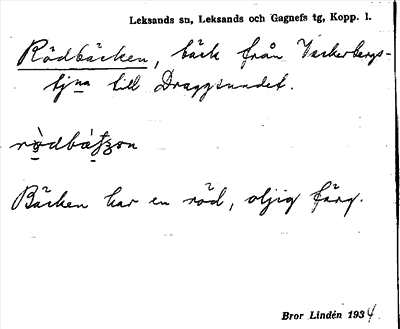 Leksands sn, Leksands och Gagnefs tg, Kopp. l.
Rödbäcken, bäck från Vackerbergs-
tjna till Draggsundet.
Bäcken har en röd, oljig färg.
Bror Lindén 1934.